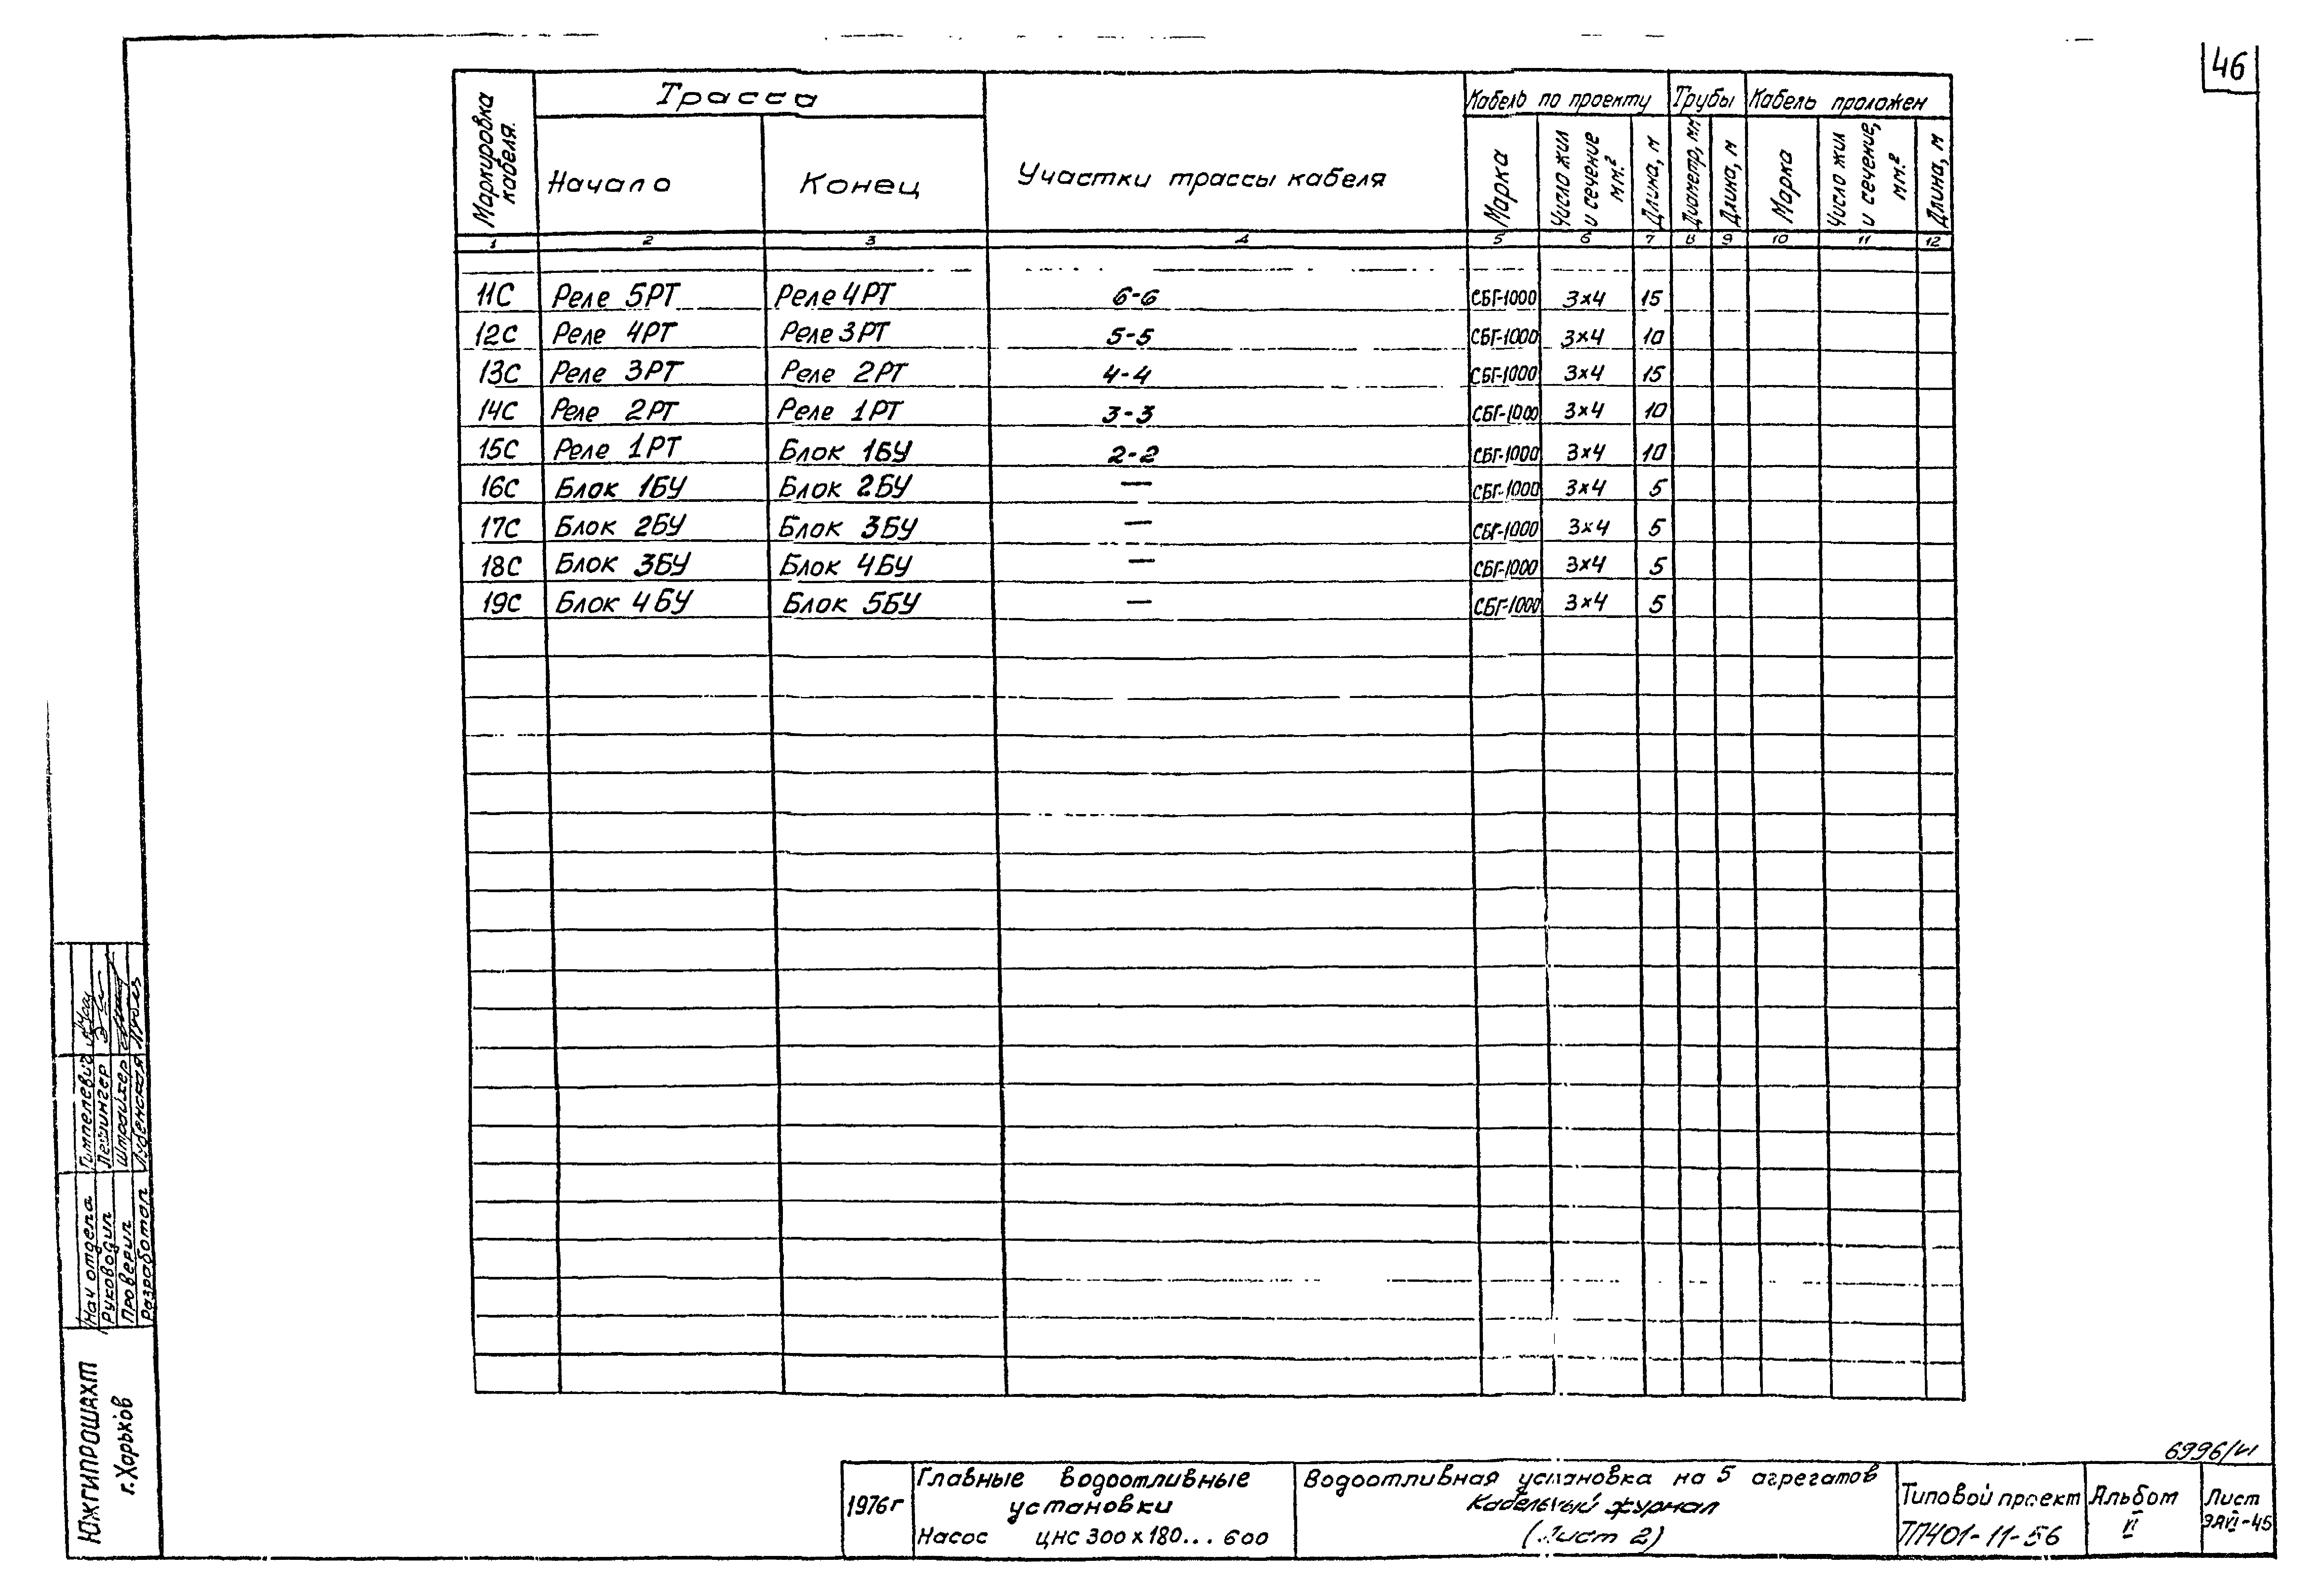 46
Маркировка кабеля.
Трасса
Начало
Конец
Участки трассы кабеля
Кабель по проекту
Марка
Число жил и сечение мм.²
Длина, м
Трубы
Диаметр, мм
Длина, м
Кабель проложен
Марка
Число жил и сечение, мм.²
Длина, м
1 2 3 4 5 6 7 8 9 10 11 12
11С Реле 5РТ Реле 4РТ 6-6 СБГ-1000 3х4 15
12С Реле 4РТ Реле 3РТ 5-5 СБГ-1000 3х4 10
13С Реле 3РТ Реле 2РТ 4-4 СБГ-1000 3х4 15
14С Реле 2РТ Реле 1РТ 3-3 СБГ-1000 3х4 10
15С Реле 1РТ Блок 1БУ 2-2 СБГ-1000 3х4 10
16С Блок 1БУ Блок 2БУ — СБГ-1000 3х4 5
17С Блок 2БУ Блок 3БУ — СБГ-1000 3х4 5
18С Блок 3БУ Блок 4БУ — СБГ-1000 3х4 5
19С Блок 4БУ Блок 5БУ — СБГ-1000 3х4 5
Нач отдела Гимпелевич
Руководил
Проверил Штрайхер
Разработал
ЮЖГИПРОШАХТ
г.Харьков
6996/VI
1976г
Главные водоотливные
установки
Насос ЦНС 300х180...600
Водоотливная установка на 5 агрегатов
Кабельный журнал
(Лист 2)
Типовой проект
ТП401-11-56
Альбом
VI
Лист
ЭАVI-45